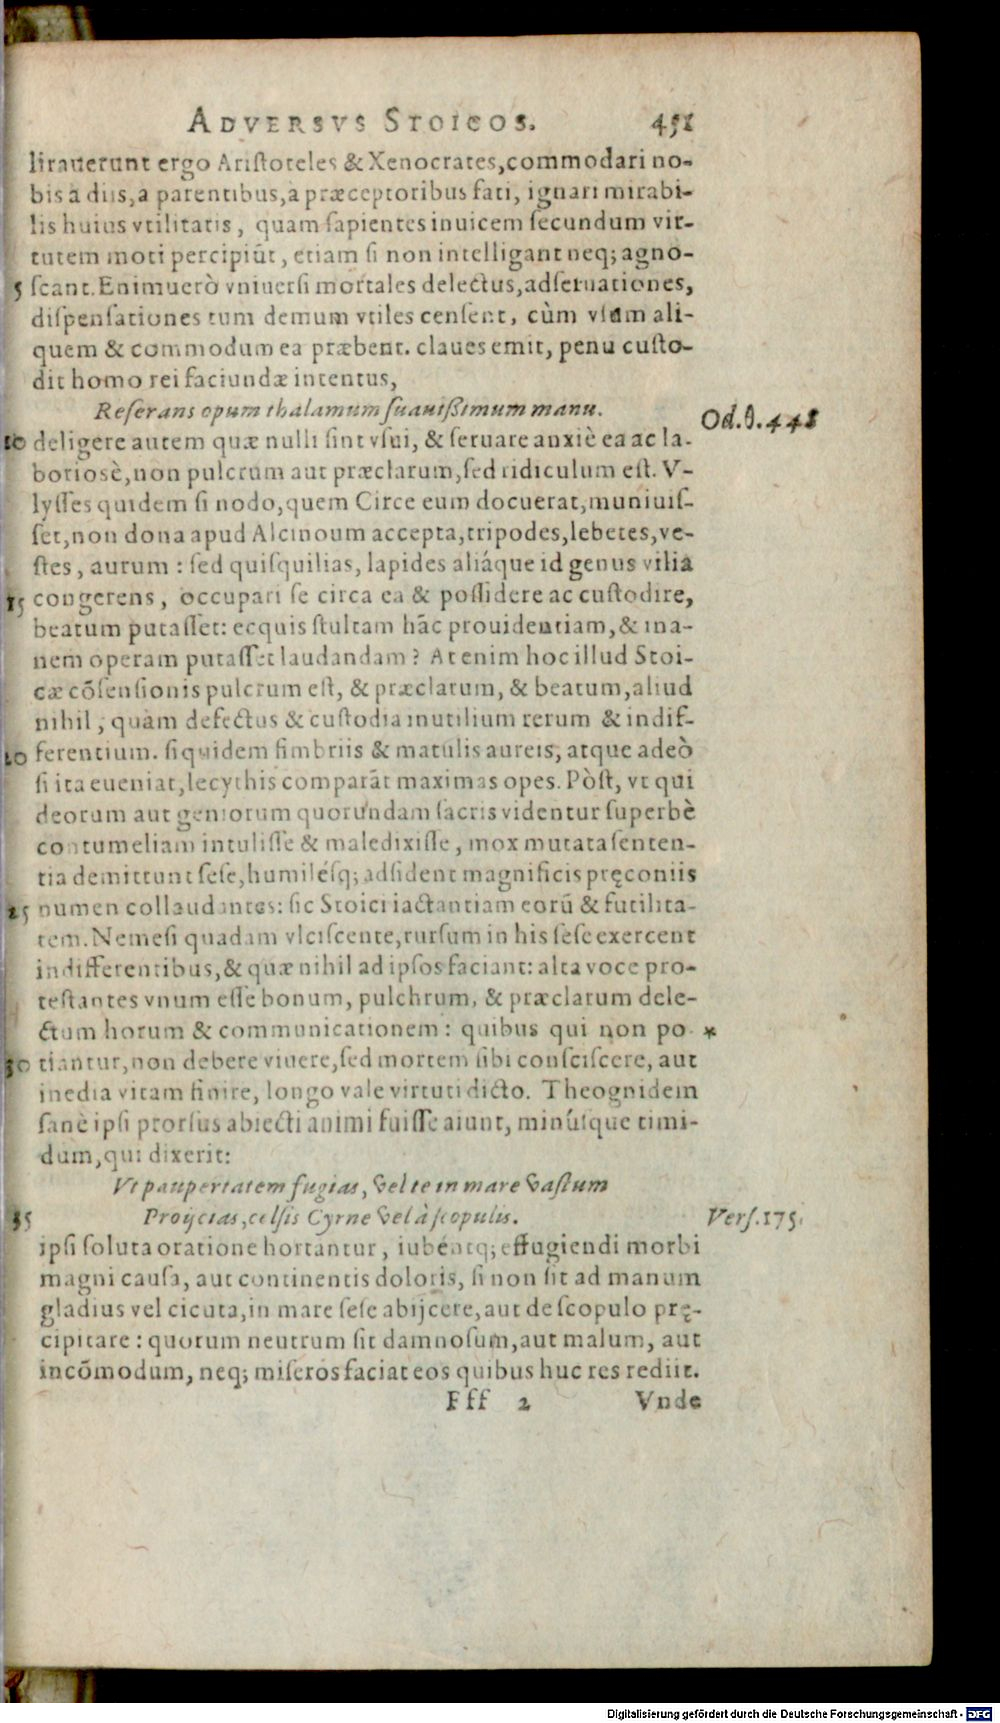 ADVERSVS STOICOS. 451
lirauerunt ergo Aristoteles & Xenocrates, commodari no-
bis à diis, a parentibus, a præceptoribus fati, ignari mirabi-
lis huius vtilitatis, quam sapientes inuicem secundum vir-
tutem moti percipiūt, etiam si non intelligant neq; agno-
5 scant. Enimuerò vniuersi mortales delectus, adseruationes,
dispensationes tum demum vtiles censent, cùm vsum ali-
quem & commodum ea præbent. claues emit, penu custo-
dit homo rei faciundæ intentus,
Reserans opum thalamum suauißimum manu. Od.θ.448
10 deligere autem quæ nulli sint vsui, & seruare anxiè ea ac la-
boriosè, non pulcrum aut præclarum, sed ridiculum est. V-
lysses quidem si nodo, quem Circe eum docuerat, muniuis-
set, non dona apud Alcinoum accepta, tripodes, lebetes, ve-
stes, aurum: sed quisquilias, lapides aliáque id genus vilia
15 congerens, occupari se circa ea & possidere ac custodire,
beatum putasset: ecquis stultam hāc prouidentiam, & ina-
nem operam putasset laudandam? At enim hoc illud Stoi-
cæ cōsensionis pulcrum est, & præclarum, & beatum, aliud
nihil, quàm defectus & custodia inutilium rerum & indif-
20 ferentium. siquidem fimbriis & matulis aureis, atque adeò
si ita eueniat, lecythis comparāt maximas opes. Pòst, vt qui
deorum aut geniorum quorundam sacris videntur superbè
contumeliam intulisse & maledixisse, mox mutata senten-
tia demittunt sese, humilésq; adsident magnificis pręconiis
25 numen collaudantes: sic Stoici iactantiam eorū & futilita-
tem. Nemesi quadam vlciscente, rursum in his sese exercent
indifferentibus, & quæ nihil ad ipsos faciant: alta voce pro-
testantes vnum esse bonum, pulchrum, & præclarum dele-
ctum horum & communicationem: quibus qui non po- *
30 tiantur, non debere viuere, sed mortem sibi consciscere, aut
inedia vitam finire, longo vale virtuti dicto. Theognidem
sanè ipsi prorsus abiecti animi fuisse aiunt, minúsque timi-
dum, qui dixerit:
Vt paupertatem fugias, vel te in mare vastum
35 Proijcias, celsis Cyrne vel à scopulis. Vers.175.
ipsi soluta oratione hortantur, iubéntq; effugiendi morbi
magni causa, aut continentis doloris, si non sit ad manum
gladius vel cicuta, in mare sese abijcere, aut de scopulo prę-
cipitare: quorum neutrum sit damnosum, aut malum, aut
incōmodum, neq; miseros faciat eos quibus huc res rediit.
Fff 2 Vnde
Digitalisierung gefördert durch die Deutsche Forschungsgemeinschaft - DFG